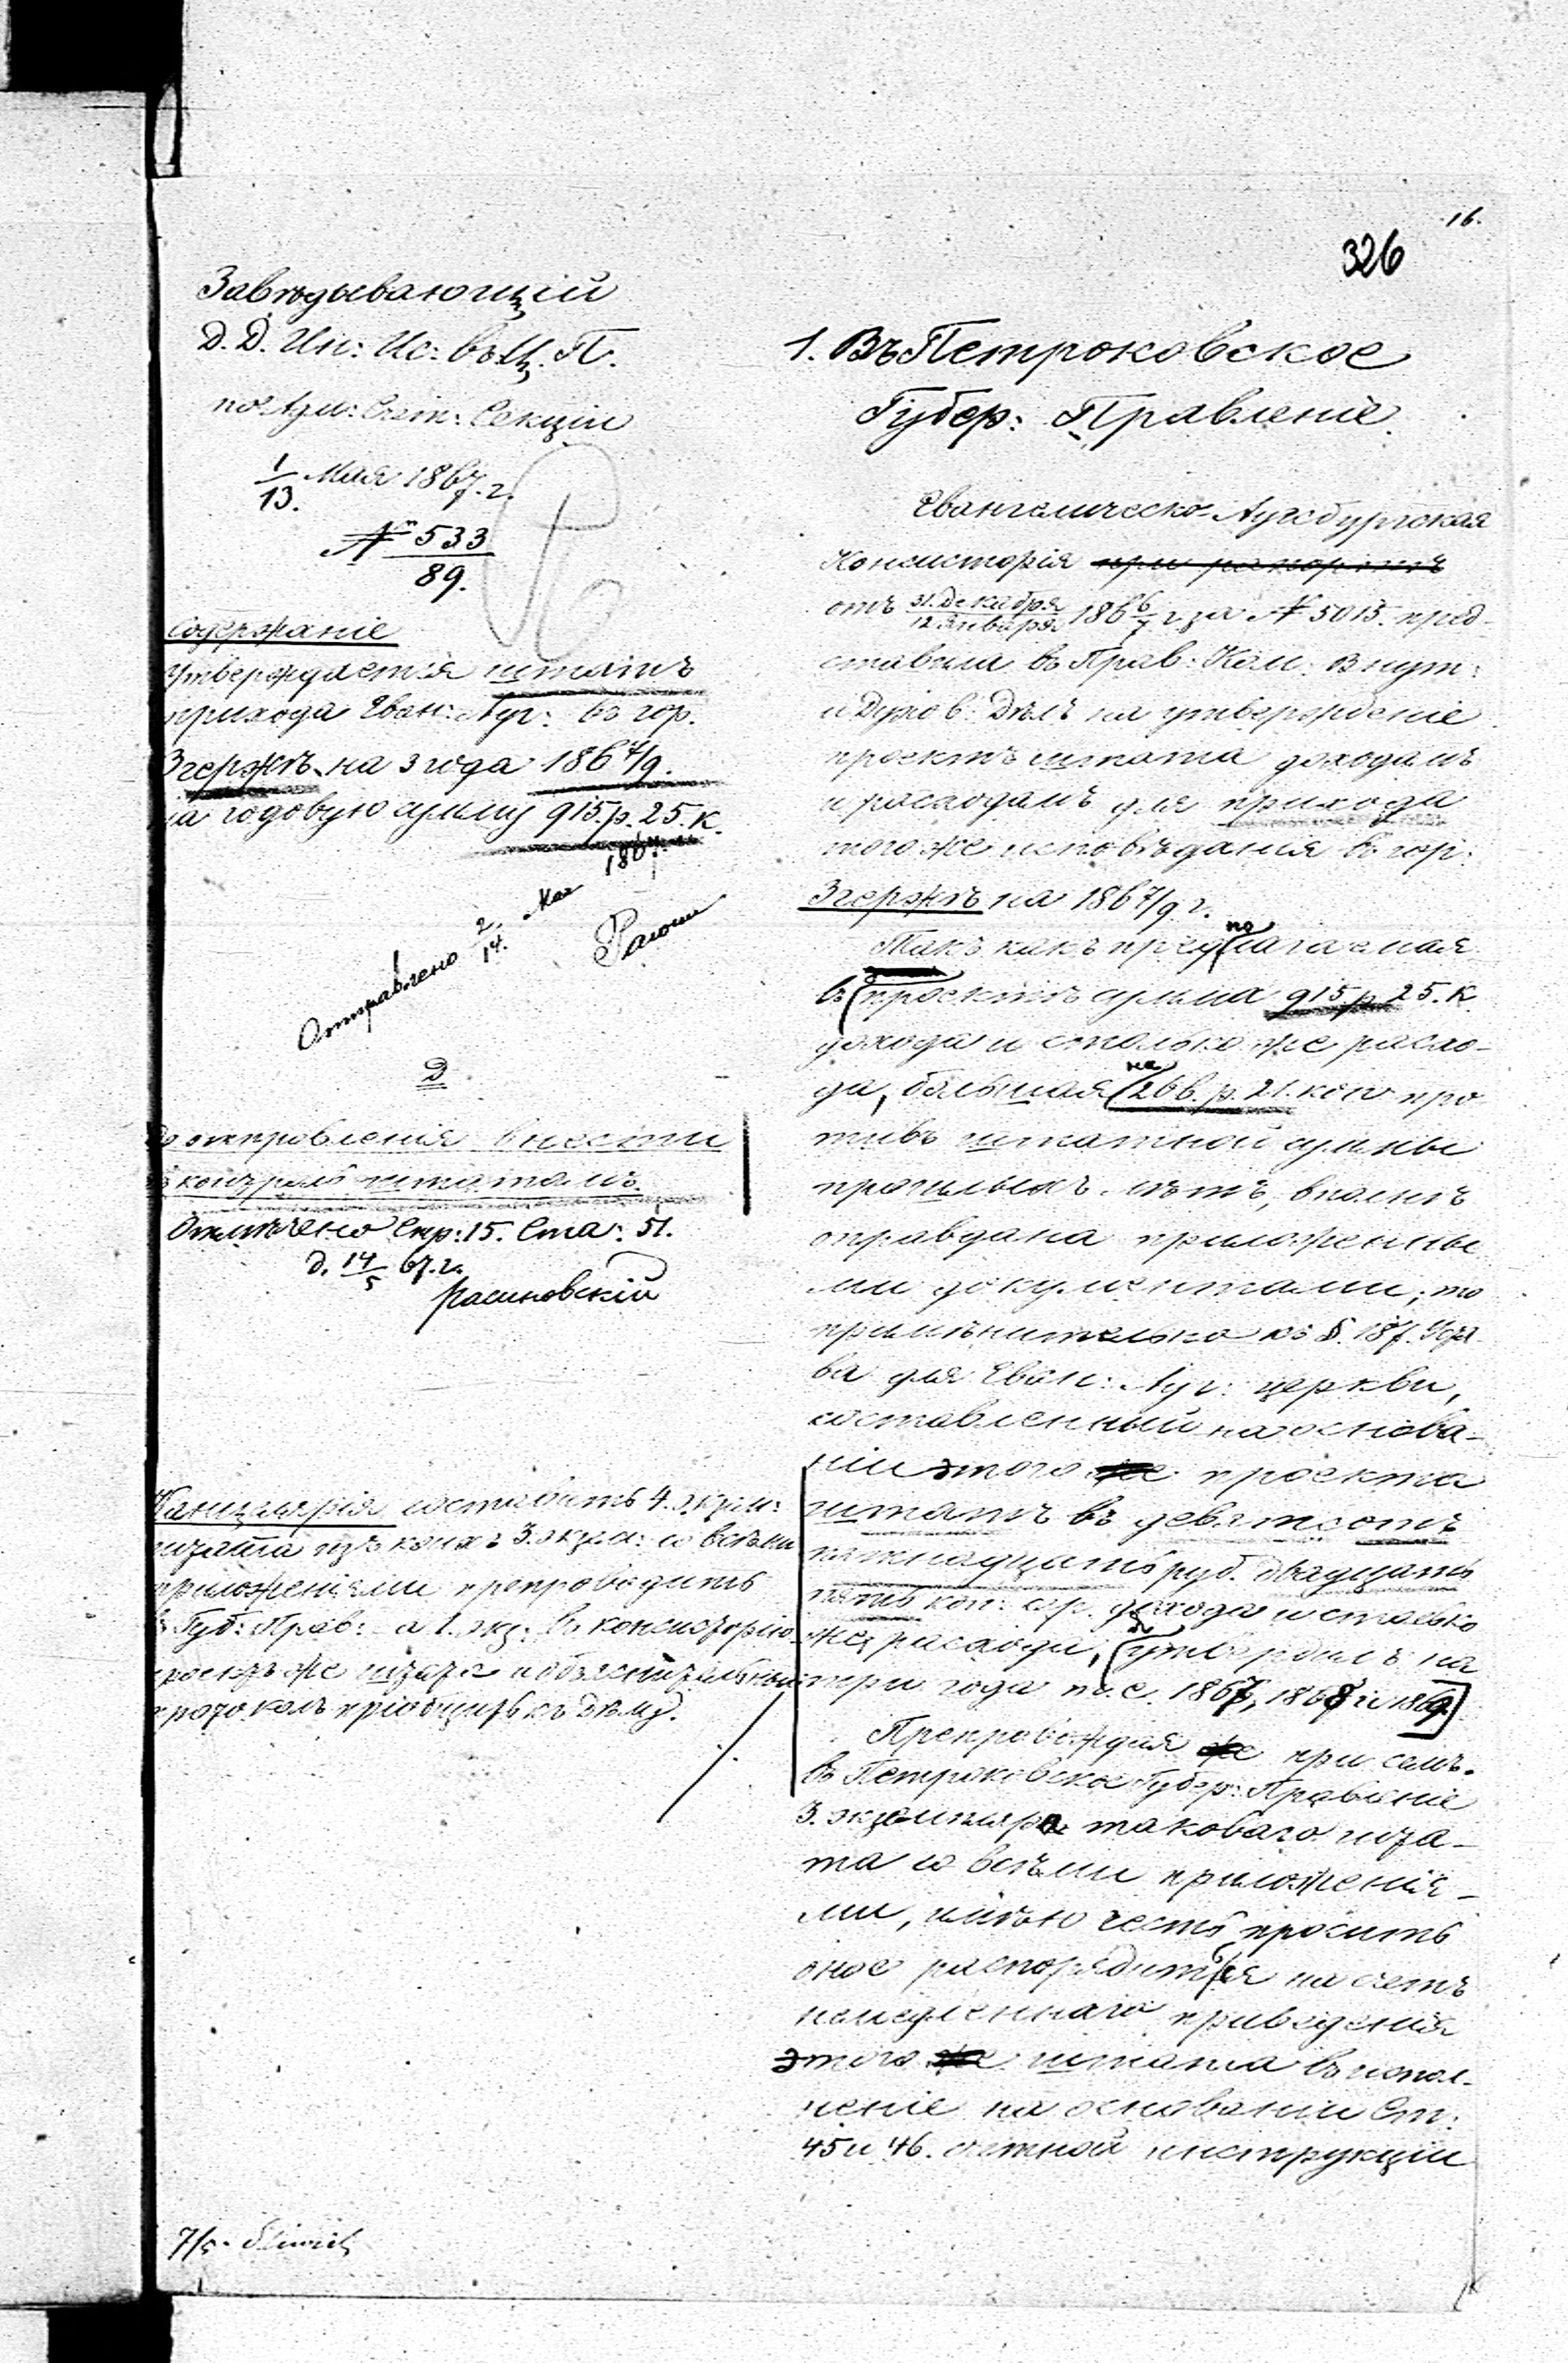 16.
326
Завѣдывающій
Д. Д. Ин: Ис: въ Ц. П.
по Адм: Счет: Секціи
1/13. Мая 1867. г.
№ 533/89.
Содержаніе
Утверждается штатъ
прихода Еван: Ауг: въ гор.
Згержѣ на 3 года 1867/9.
на годовую сумму 915. р. 25. к.
Отправлено 2/14. Мая 1867
Д
До отправленія внести
въ контроль штатамъ.
Отмѣчено Стр: 15. Ста: 51.
д. 14/5 67. г.
Канцелярія составитъ 4. экзем:
штата изъ коихъ 3. экзем: со всѣми
приложеніями препроводитъ
въ Губ: Прав: а 1. экз: въ консисторію
проектъ же штата и объяснительный
протоколъ пріобщитъ къ дѣлу.
7/5.
1. Въ Петроковское
Губер: Правленіе
Евангелическо-Аугсбургская
Консисторія при рапортѣ
отъ 31. Декабря/12. Января 1866/7 г. за № 5015. пред-
ставила въ Прав: Ком: Внут:
и Духов: Дѣлъ на утвержденіе
проектъ штата доходамъ
и расходамъ для прихода
того же исповѣданія въ гор:
Згержѣ на 1867/9 г.
Такъ какъ предполагаемая
въ проектѣ сумма 915 р. 25. к.
дохода и столько же расхо-
да, большая на 266. р. 21. коп про
тивъ штатной суммы
прошлыхъ лѣтъ, вполнѣ
оправдана приложенны
ми документами; то
примѣнительно къ §. 187. Уста
ва для Еван: Ауг: церкви,
составленный на основа-
ніи этого же проекта
штатъ въ девятсотъ
пятнадцать руб. двадцать
пять коп: сер. дохода и столько
же расхода, утвердилъ на
три года т. е. 1867, 1868 и 1869.
Препровождая же при семъ
въ Петроковское Губер: Правленіе
3. экземпляра таковаго шта-
та со всѣми приложенія-
ми, имѣю честь просить
оное распорядиться на счетъ
немедленнаго приведенія
этого же штата въ испол-
неніе на основаніи Ст:
45 и 46. счетной инструкціи